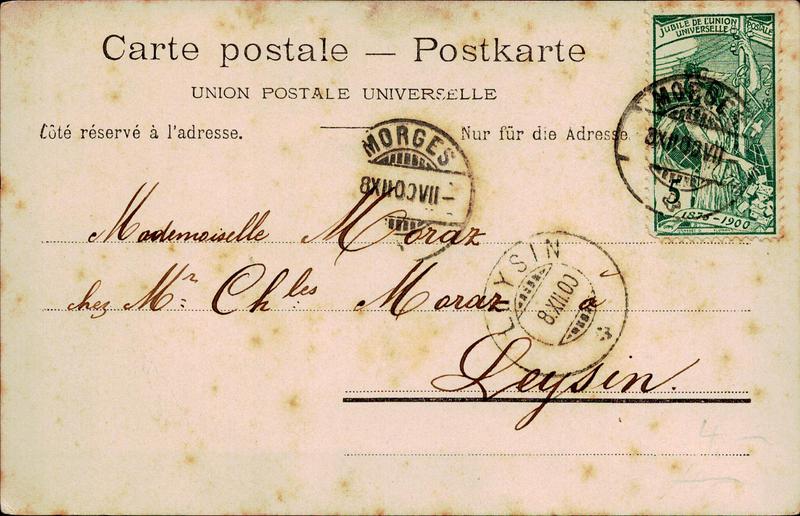 Carte postale — Postkarte
UNION POSTALE UNIVERSELLE
Côté réservé à l'adresse.
Nur für die Adresse.
JUBILÉ DE L'UNION POSTALE
UNIVERSELLE
5
1875-1900
MORGES
8XII00VII–
MORGES
8XII00VII
LEYSIN
8.XII.00
Mademoiselle Moraz
chez Mr: Ch.les Moraz à
Leysin.
4 –